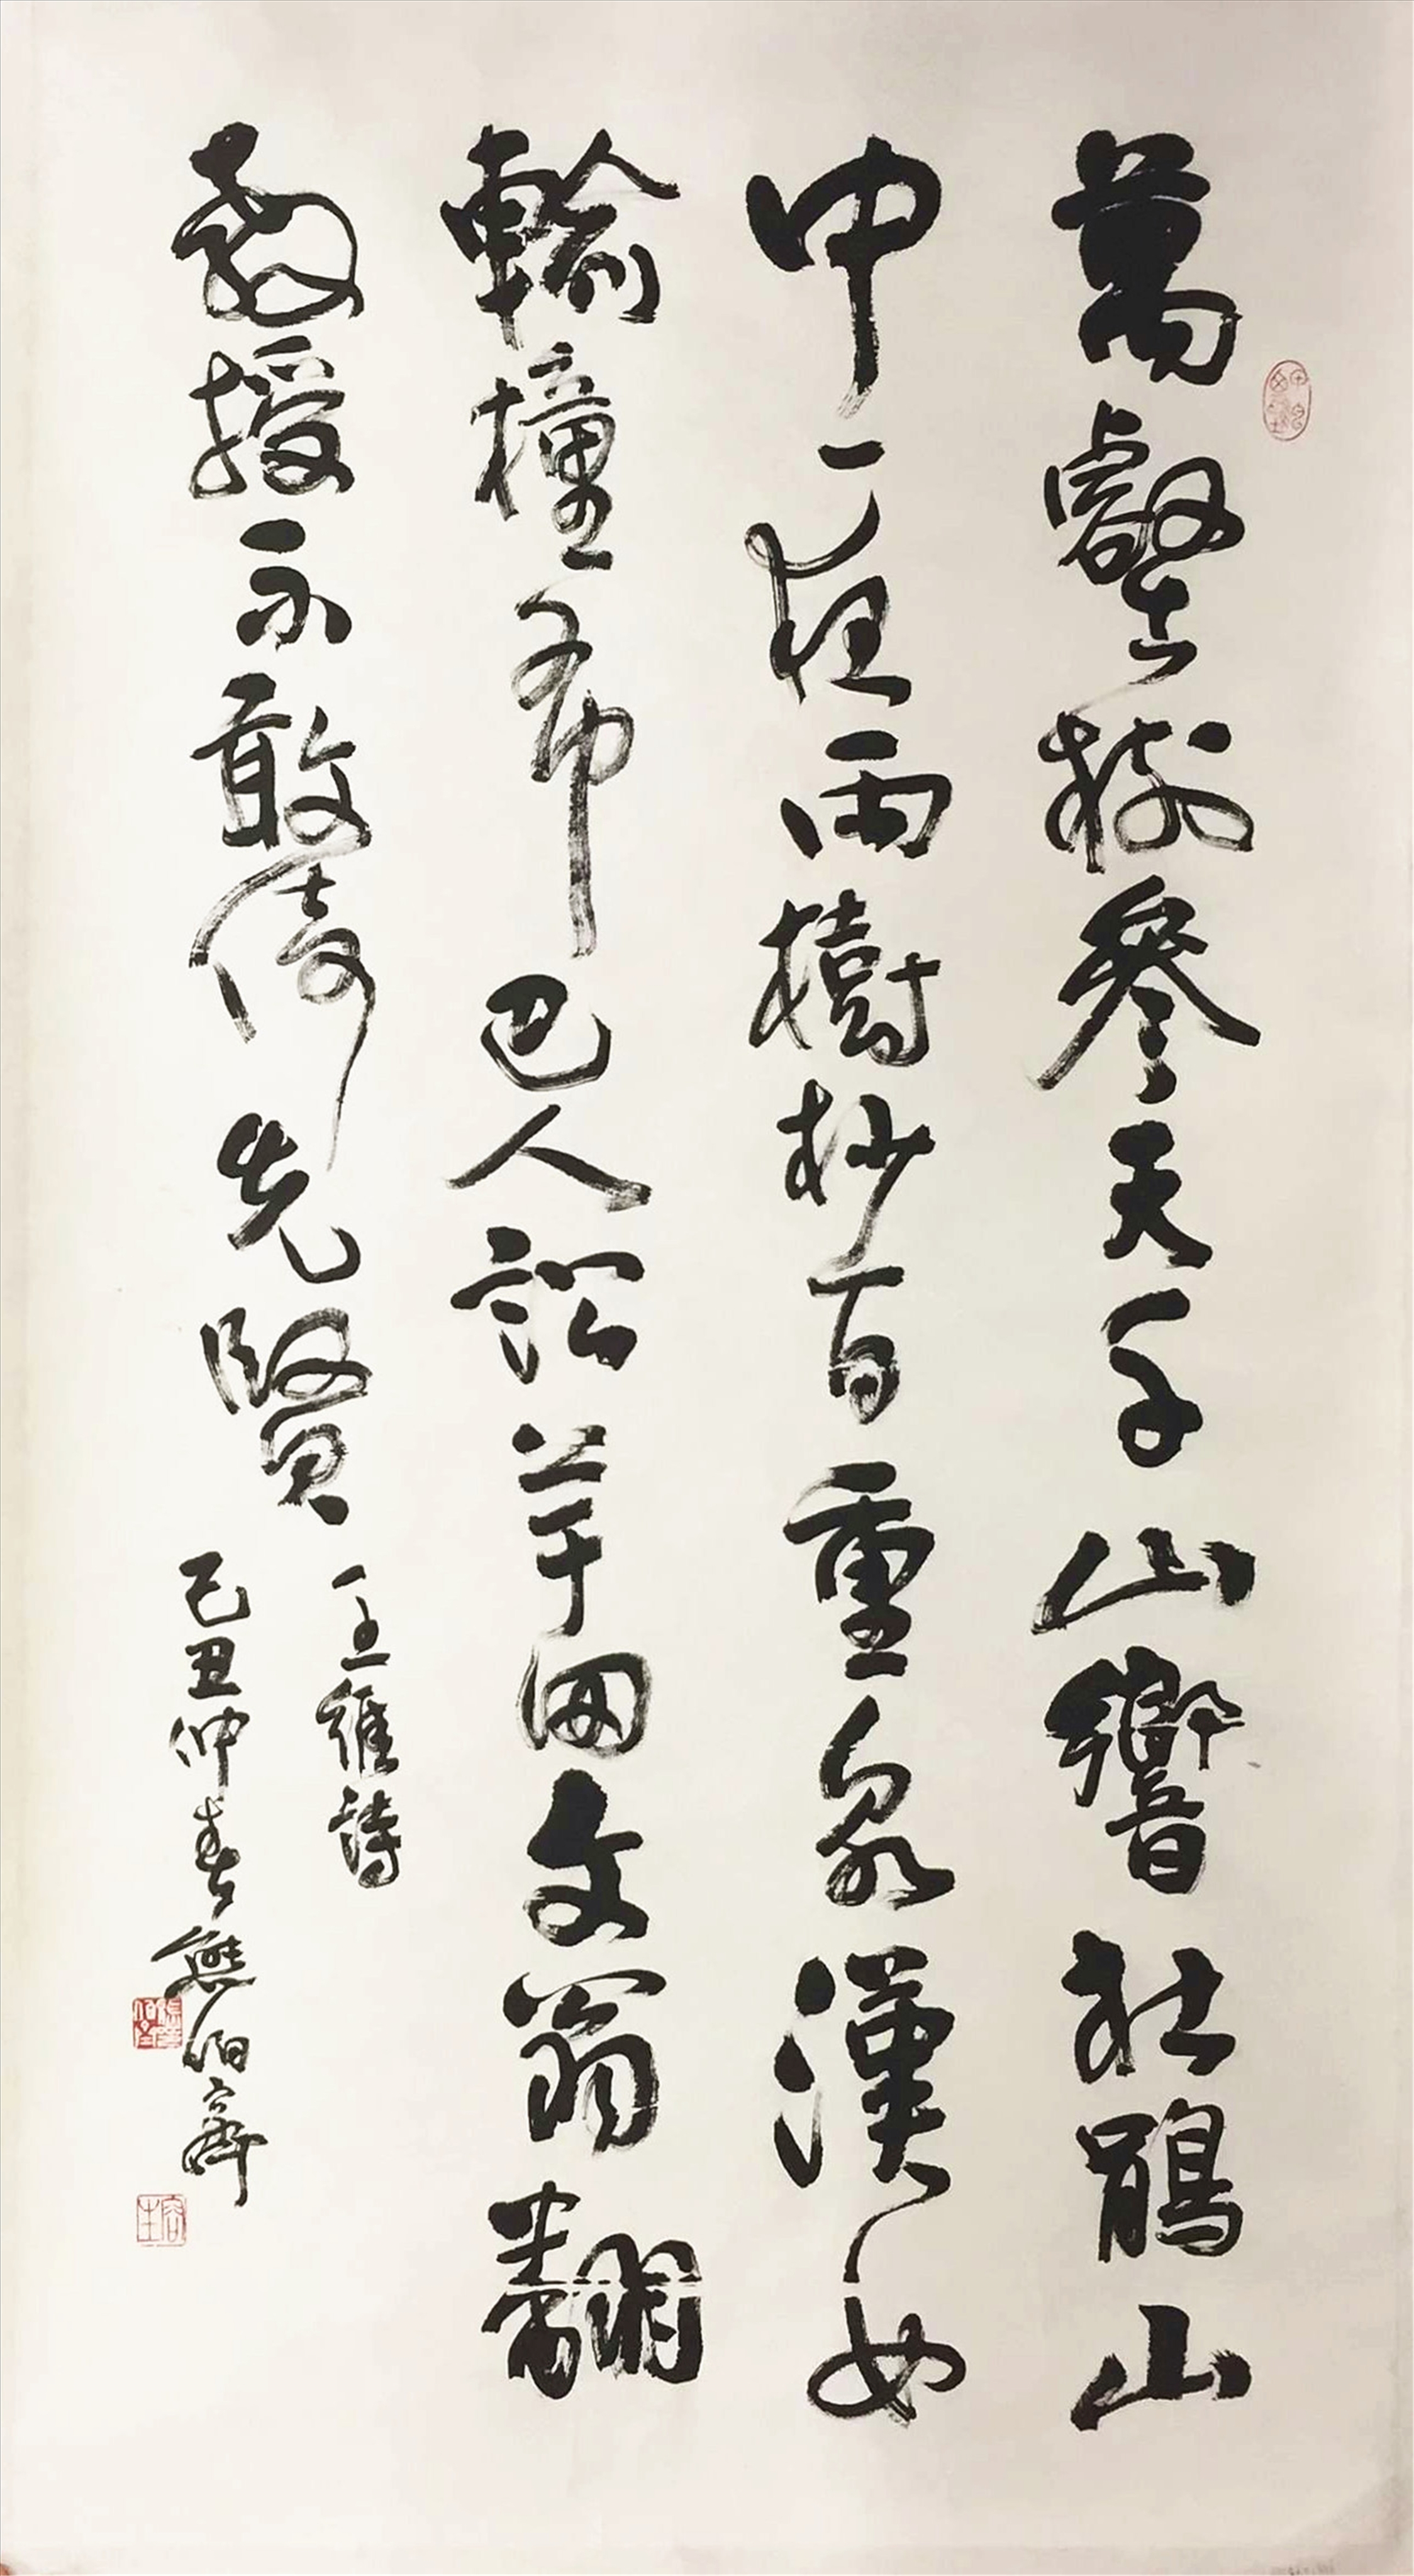 萬壑樹參天千山響杜鵑山
中一夜雨樹杪百重泉漢女
輸橦布巴人訟芋田文翁翻
教授不敢倚先賢
王維詩
己丑仲春熊伯齊